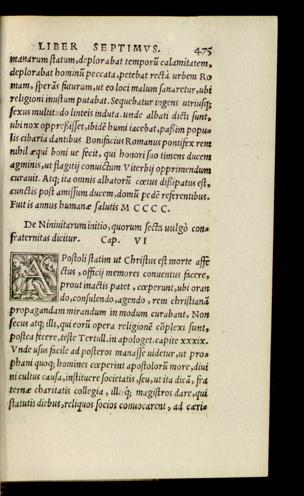 LIBER SEPTIMVS. 475
manarum statum, deplorabat temporũ calamitatem,
deplorabat hominũ peccata, petebat rectà urbem Ro
mam, sperãs futurum, ut eo loci malum sanaretur, ubi
religioni inustum putabat. Sequebatur ingens utriusq;
sexus multitudo linteis induta. unde albati dicti sunt,
ubi nox oppressisset, ibidẽ humi iacebat, passim popu
lis cibaria dantibus Bonifacius Romanus pontifex rem
nihil æqui boni ue fecit, qui honori suo timens ducem
agminis, ut flagitij conuictum Viterbij opprimendum
curauit. Atq; ita omnis albatorũ cœtus dissipatus est,
cunctis post amissum ducem, domũ pedẽ referentibus.
Fuit is annus humanæ salutis M CCCC.
De Niniuitarum initio, quorum secta uulgò con
fraternitas dicitur. Cap. VI
APostoli statim ut Christus est morte affe
ctus, officij memores conuentus facere,
prout inactis patet, cœperunt, ubi oran
do, consulendo, agendo, rem christianã
propagandam mirandum in modum curabant, Non
secus atq; illi, qui eorũ opera religionẽ cõplexi sunt,
postea fecere, teste Tertull. in apologet. capite xxxix.
Vnde usus facile ad posteros manasse uidetur, ut pro
phani quoq; homines cœperint apostolorũ more, diui
ni cultus causa, instituere societatis, seu, ut ita dicã, fra
ternæ charitatis collegia, illisq́; magistros dare, qui
statutis diebus, reliquos socios conuocarent, ad cari=